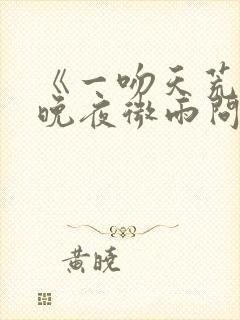 《一吻天荒
晚夜微雨问
黄晓